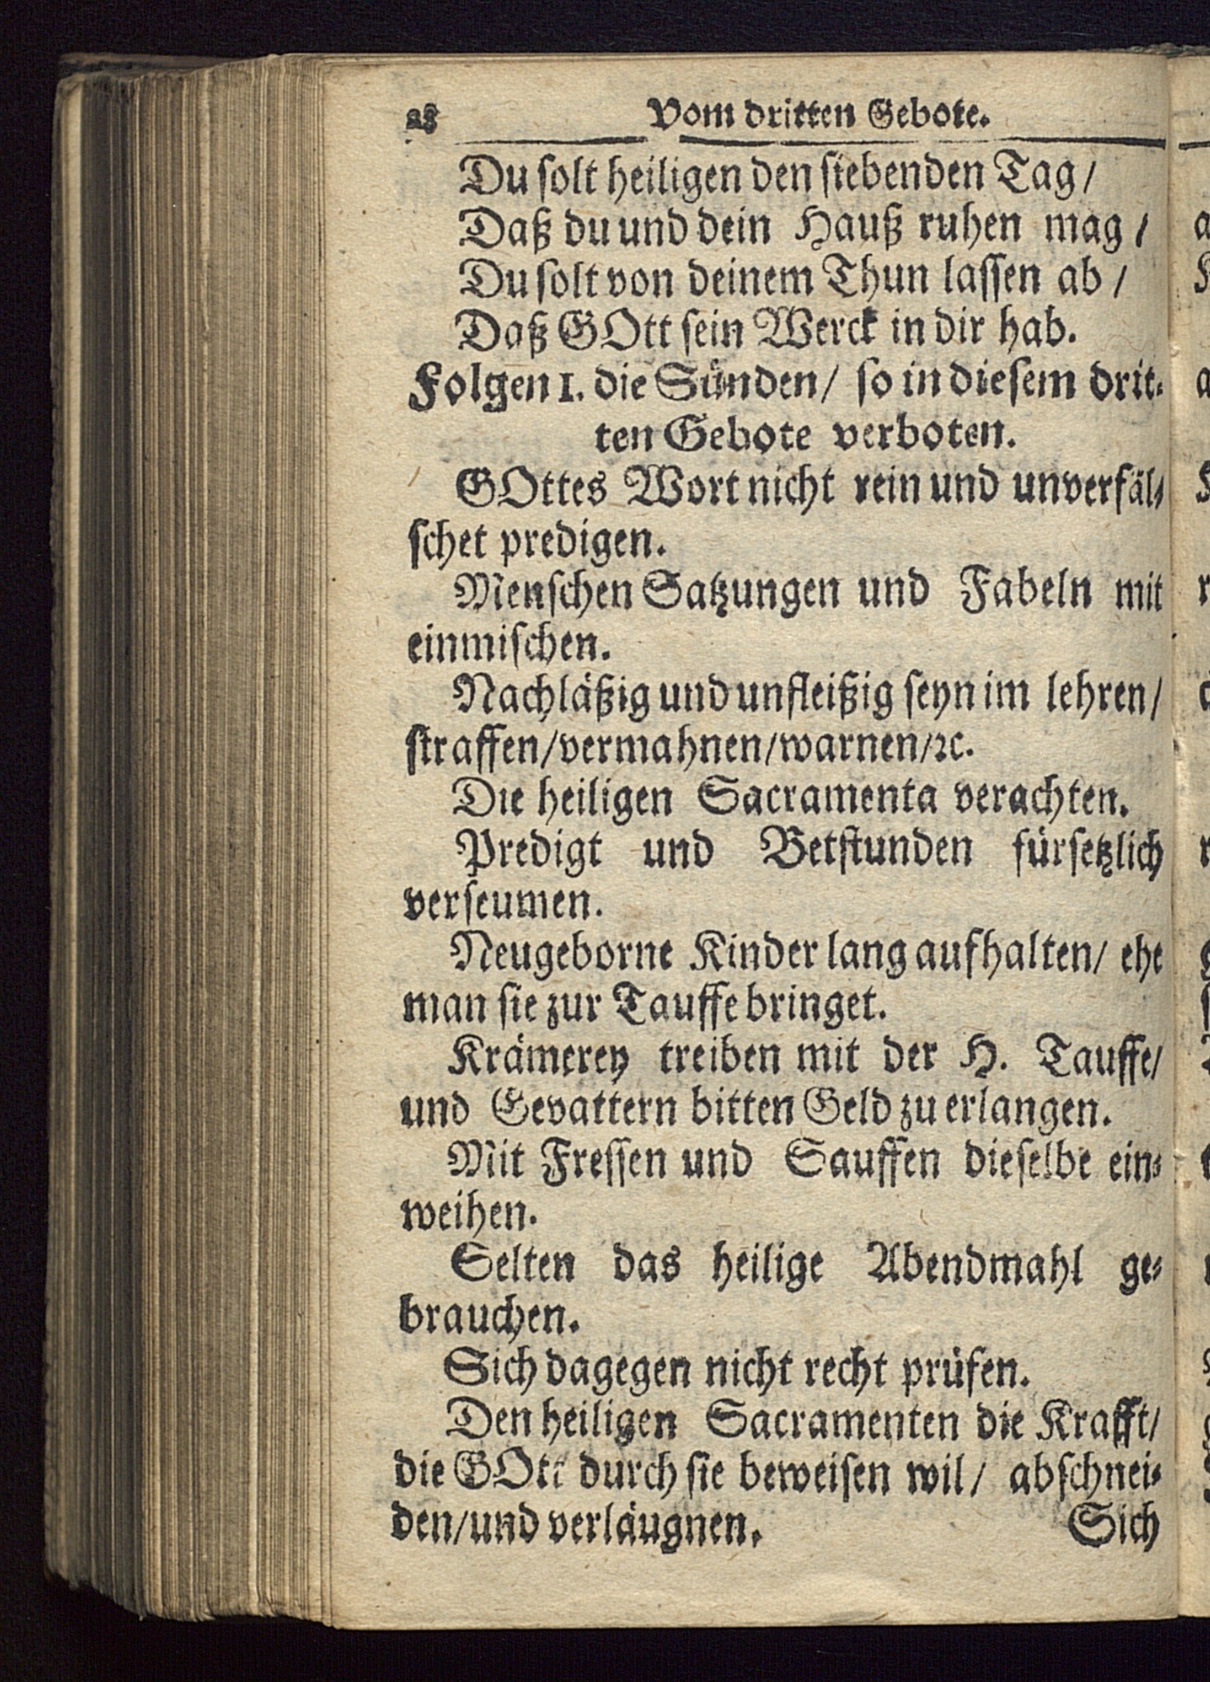 28 Vom dritten Gebote.
Du solt heiligen den siebenden Tag/
Daß du und dein Hauß ruhen mag/
Du solt von deinem Thun lassen ab/
Daß GOtt sein Werck in dir hab.
Folgen 1. die Sünden/ so in diesem drit-
ten Gebote verboten.
GOttes Wort nicht rein und unverfäl-
schet predigen.
Menschen Satzungen und Fabeln mit
einmischen.
Nachläßig und unfleißig seyn im lehren/
straffen/vermahnen/warnen/ꝛc.
Die heiligen Sacramenta verachten.
Predigt und Betstunden fürsetzlich
verseumen.
Neugeborne Kinder lang aufhalten/ ehe
man sie zur Tauffe bringet.
Krämerey treiben mit der H. Tauffe/
und Gevattern bitten Geld zu erlangen.
Mit Fressen und Sauffen dieselbe ein-
weihen.
Selten das heilige Abendmahl ge-
brauchen.
Sich dagegen nicht recht prüfen.
Den heiligen Sacramenten die Krafft/
die GOtt durch sie beweisen wil/ abschnei-
den/und verläugnen. Sich